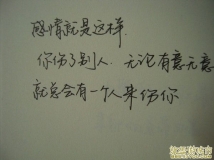 感情就是这样
你伤了别人.无论有意无意
就总会有一个人来伤你